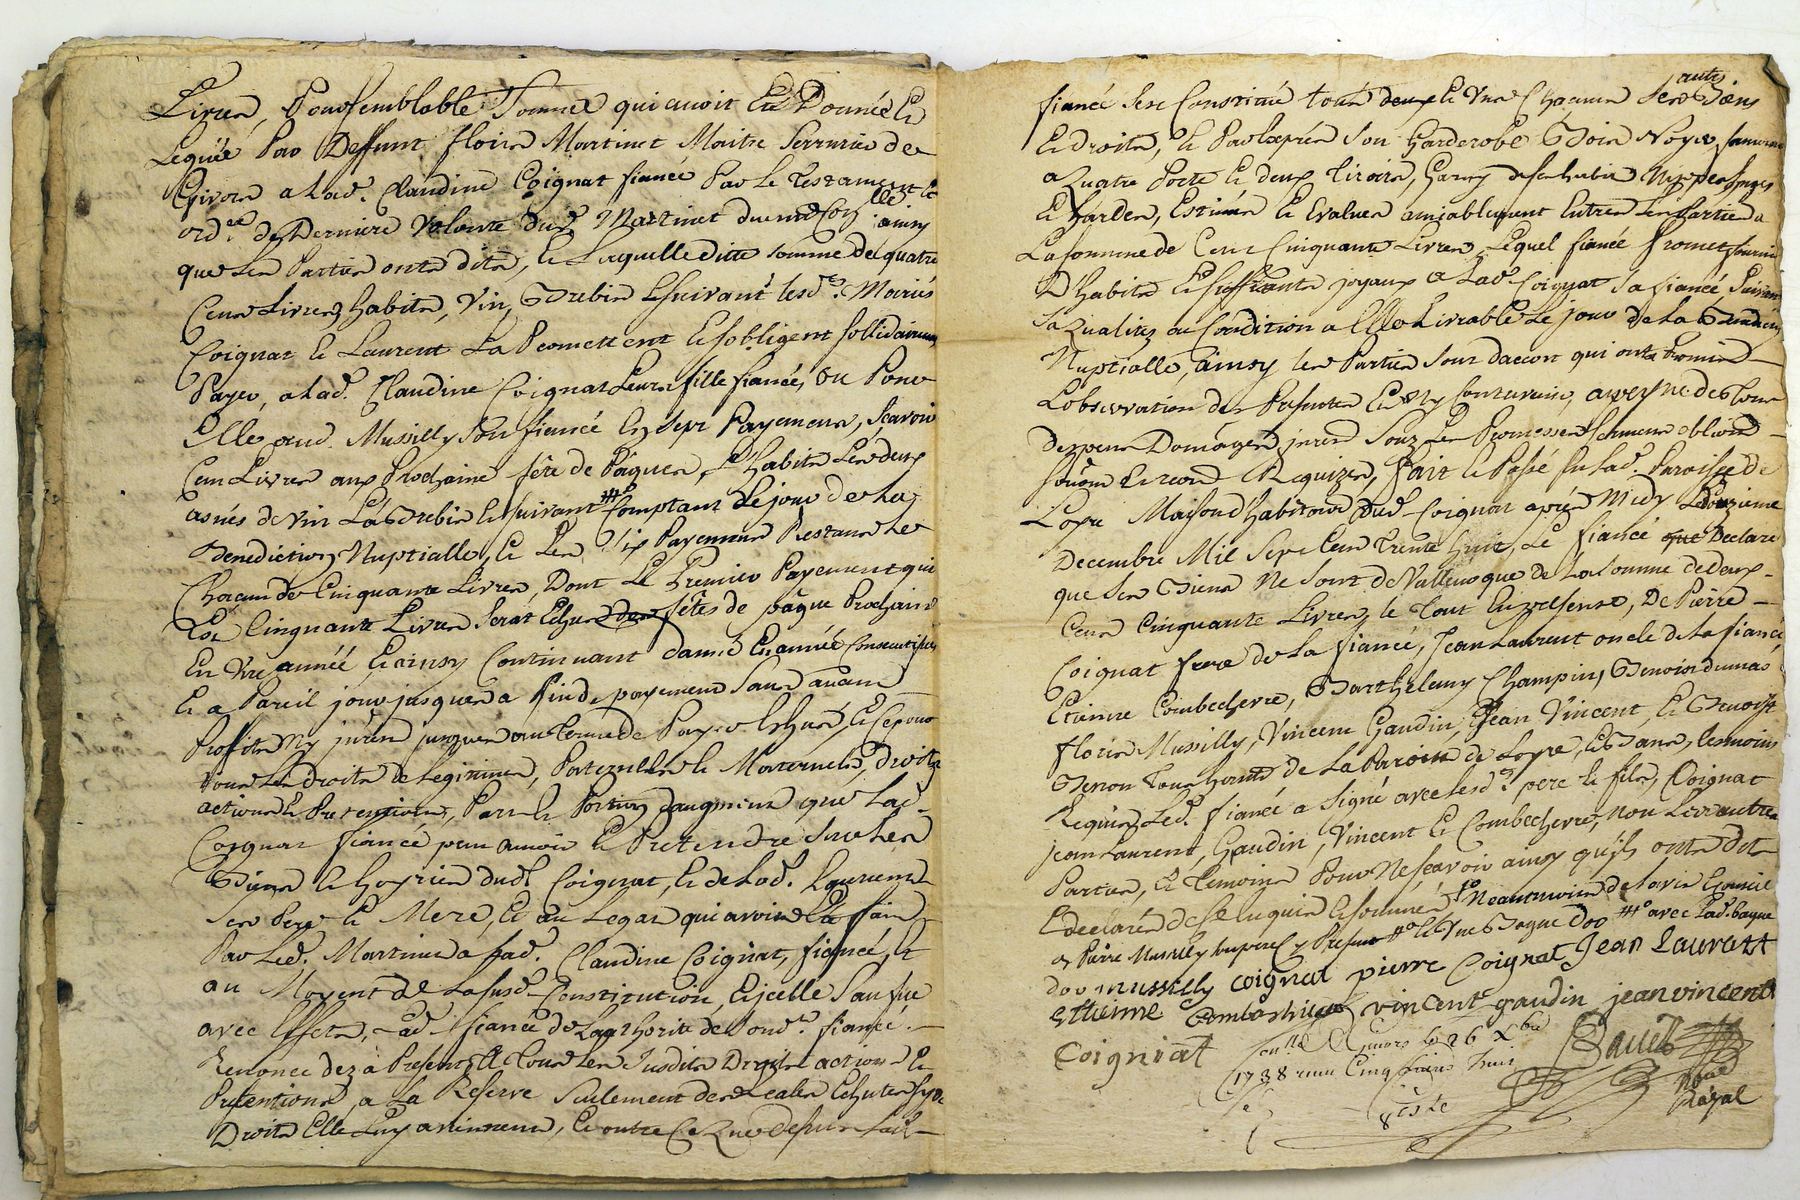 Livres, Pour semblable Somme qui avoit Eté Donnée Et
Leguée Par Deffunt florin Martinet Maitre Serrurier de
Givors a Lad.e Claudine Coignat fiancée Par Le Testament et
ord.ce de Derniere Volonté dud.t Martinet
que Les Parties ont dits, Et Laquelle ditte somme de quatre
Cens Livres, habits, Vin, Brebis Et suivant lesd.ts Mariés
Coignat Et Laurent La Promettent Et sobligent sollidairement
Payer, a Lad.e Claudine Coignat Leur fille fiancée, ou Pour
Elle aud.t Mussilly Son fiancé En sept Payements, Scavoir
Cent Livres aux Prochaine fête de Pâques, Les habits Les deux
asnés de Vin La Brebis Et suivant Comptant Le jour de La
Benediction Nuptialle, Et Les Six Payements Restants de
Chacun de Cinquante Livres, Dont Le Premier Payement qui
Est Cinquante Livres Serat Echu des fêtes de pâque Prochaine
En Une année, Et ainsy Continuant dannée En année Consecutives
Et a Pareil jour jusques a fin de payement Sans aucun
Proffits Ny jnterets jusques au terme de Payer Echu, Et ce pour
tous Les droits de Legitimes, Paternelles Et Maternels, droits
actions Et Pretentions, Part Et Portion daugment que Lad.e
Coignat fiancée peut avoir Et Pretendre Sur Les
Biens Et hoyries dud.t Coignat, Et de Lad.e Laurent
Ses Pere Et Mere, Et au Legat qui avoit Eté fait
Par Led.t Martinet a Lad.e Claudine Coignat, fiancée, Et
au Moyent de La susd.e Constitution, Et jcelle Sauf Sue
avec Effets, Lad.e fiancée de Lauthorité de Sond.t fiancé
Renonce dez à Present, a tous Les Susdits Droits actions Et
Pretentions, a La Reserve Seulement des Loyales Echutes sy de
Droits Elle Luy aviennent, Et outre Ce Que dessus Lad.e
fiancée Sest Constitué tous deux Et Uns Chacuns Ses autres Biens
Et Droits, Et Par Exprés Son Garderobe Bois Noyer fermant
a Quatre Porte Et deux tiroirs, Garny de Ses habits Nippes Linges
Et hardes, Estimés Et Evalués amiablement Entre Les Parties a
La somme de Cent Cinquante Livres, Lequel fiancé Promet fournir
D'habits Et suffisants joyaux a Lad.e Coignat Sa fiancée Suivant
Sa Qualitez ou Condition a Elle Livrable Le jour de La Benediction
Nuptialle, ainsy Les Parties Sont daccort qui ont Promis
Lobservation des Presentes Et N'y Contrevenir, a peyne de tous
despens Domages jnterets Souz Les Promesses Serment obligations
Soumissions Et renon.s Requizes, fait Et Passé En Lad.e Paroisse de
Loyre Maison d'habitation dud.t Coignat aprés Midy Le Douzieme
Decembre Mil Sept Cent Trente huit, Le fiancé Declare
que Ses Biens Ne Sont de Valleur que de La Somme de deux
Cens Cinquante Livres, Le Tout En presence, De Pierre
Coignat frere de La fiancée, Jean Laurent oncle de La fiancée
Etienne Combechevre, Barthelemy Champin, Benoist dumas
florin Mussilly, Vincent Gaudin, Jean Vincent, Et Benoist
Benon Tous habitants de La Paroisse de Loyre, Et Bans, temoins
Requis, Led.t fiancé a Signé avec Lesd.ts pere Et fils, Coignat
Jean Laurent, Gaudin, Vincent Et Combechevre, non Les autres
Parties, Et Temoins Pour Ne scavoir ainsy qu'ils ont Dit
Et declarés de Ce Enquis Et sommés Neantmoins de Lavis Et conseil
de Pierre Mussilly Son pere Cy Present Et Une Bague Dor avec Lad.e bague
dor mussilly coignat pierre Coignat Jean Laurant
Ettienne Combachieure vincent gaudin jean vincent
Coigniat Con.llé A Givors Le 26 X.bre
1738 reçu Cinq livres huit